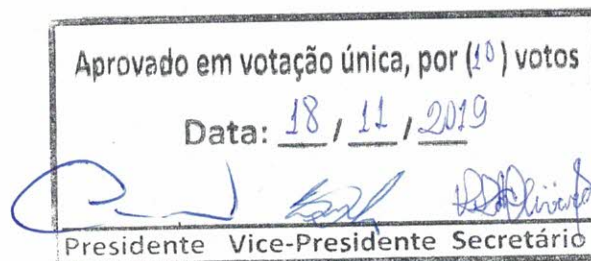 Aprovado em votação única, por (10) votos
Data: 18 / 11 / 2019
Presidente Vice-Presidente Secretário